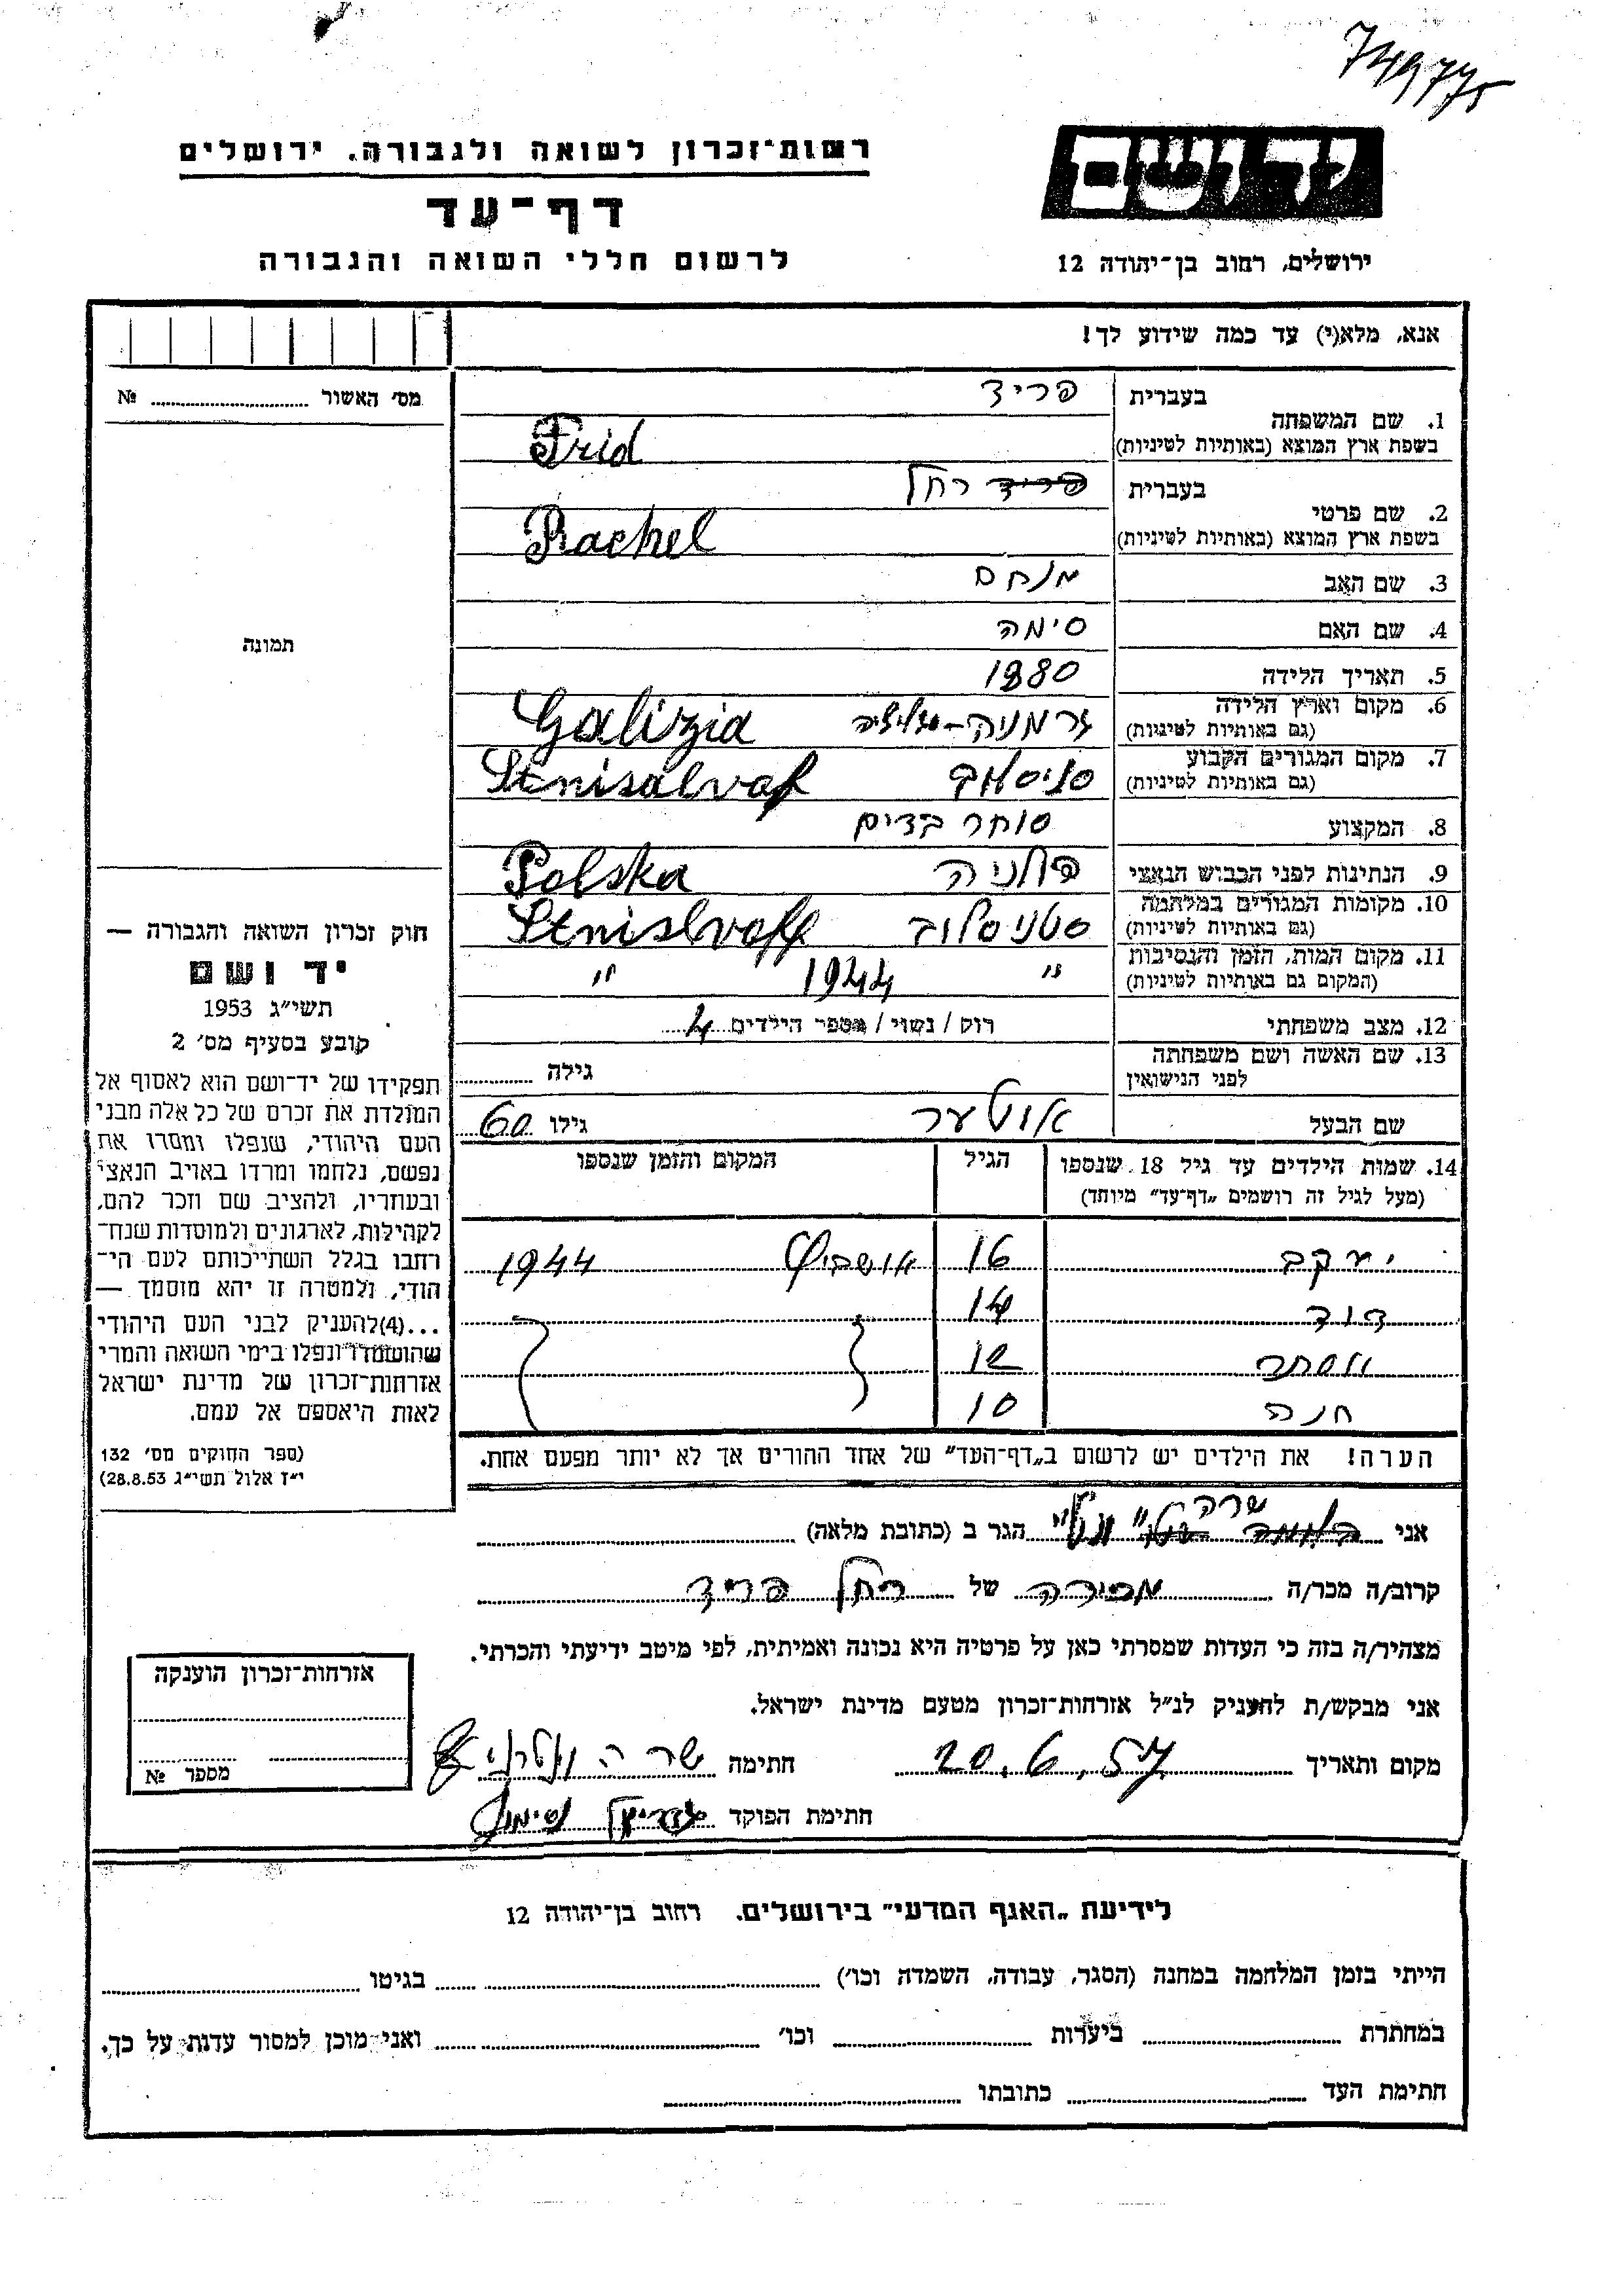 749775
רשות־זכרון לשואה ולגבורה, ירושלים
יד ושם
דף־עד
לרשום חללי השואה והגבורה
ירושלים, רחוב בן־יהודה 12
אנא, מלא(י) עד כמה שידוע לך!
מס׳ האשור № 
בעברית פריד
1. שם המשפחה
בשפת ארץ המוצא (באותיות לטיניות) Frid
בעברית פריד רחל
2. שם פרטי
בשפת ארץ המוצא (באותיות לטיניות) Rachel
3. שם האב מנחם
4. שם האם סימה
תמונה
5. תאריך הלידה 1880
6. מקום וארץ הלידה גרמניה-גליציה Galizia
(גם באותיות לטיניות)
7. מקום המגורים הקבוע Stnisalvaf
(גם באותיות לטיניות)
8. המקצוע סוחר בדים
9. הנתינות לפני הכבוש הנאצי פולניה Polska
10. מקומות המגורים במלחמה סטניסלוב Stnislvoff
(גם באותיות לטיניות)
11. מקום המות, הזמן והנסיבות " 1944 "
(המקום גם באותיות לטיניות)
12. מצב משפחתי רוק / נשוי / מספר הילדים 4
13. שם האשה ושם משפחתה גילה
לפני הנישואין
שם הבעל אוטער גילו 60
14. שמות הילדים עד גיל 18 שנספו הגיל המקום והזמן שנספו
(מעל לגיל זה רושמים „דף־עד״ מיוחד)
יעקב 16 אושביץ 1944
דוד 14
אסתר 12
חנה 10
הערה! את הילדים יש לרשום ב„דף־העד״ של אחד ההורים אך לא יותר מפעם אחת.
חוק זכרון השואה והגבורה —
יד ושם
תשי״ג 1953
קובע בסעיף מס׳ 2
תפקידו של יד־ושם הוא לאסוף אל
המולדת את זכרם של כל אלה מבני
העם היהודי, שנפלו ומסרו את
נפשם, נלחמו ומרדו באויב הנאצי
ובעוזריו, ולהציב שם וזכר להם,
לקהילות, לארגונים ולמוסדות שנח־
רבו בגלל השתייכותם לעם הי־
הודי, ולמטרה זו יהא מוסמך —
...(4)להעניק לבני העם היהודי
שהושמדו ונפלו בימי השואה והמרי
אזרחות־זכרון של מדינת ישראל
לאות היאספם אל עמם.
(ספר החוקים מס׳ 132
י״ז אלול תשי״ג 28.8.53)
אני שרה הגר ב (כתובת מלאה)
קרוב/ה מכר/ה מכירה של רחל פריד
מצהיר/ה בזה כי העדות שמסרתי כאן על פרטיה היא נכונה ואמיתית, לפי מיטב ידיעתי והכרתי.
אני מבקש/ת להעניק לנ״ל אזרחות־זכרון מטעם מדינת ישראל.
מקום ותאריך 20.6.57 חתימה שרה
חתימת הפוקד
אזרחות־זכרון הוענקה
מספר №
לידיעת „האגף המדעי״ בירושלים, רחוב בן־יהודה 12
הייתי בזמן המלחמה במחנה (הסגר, עבודה, השמדה וכו׳) בגיטו
במחתרת ביערות וכו׳ ואני מוכן למסור עדות על כך.
חתימת העד כתובתו